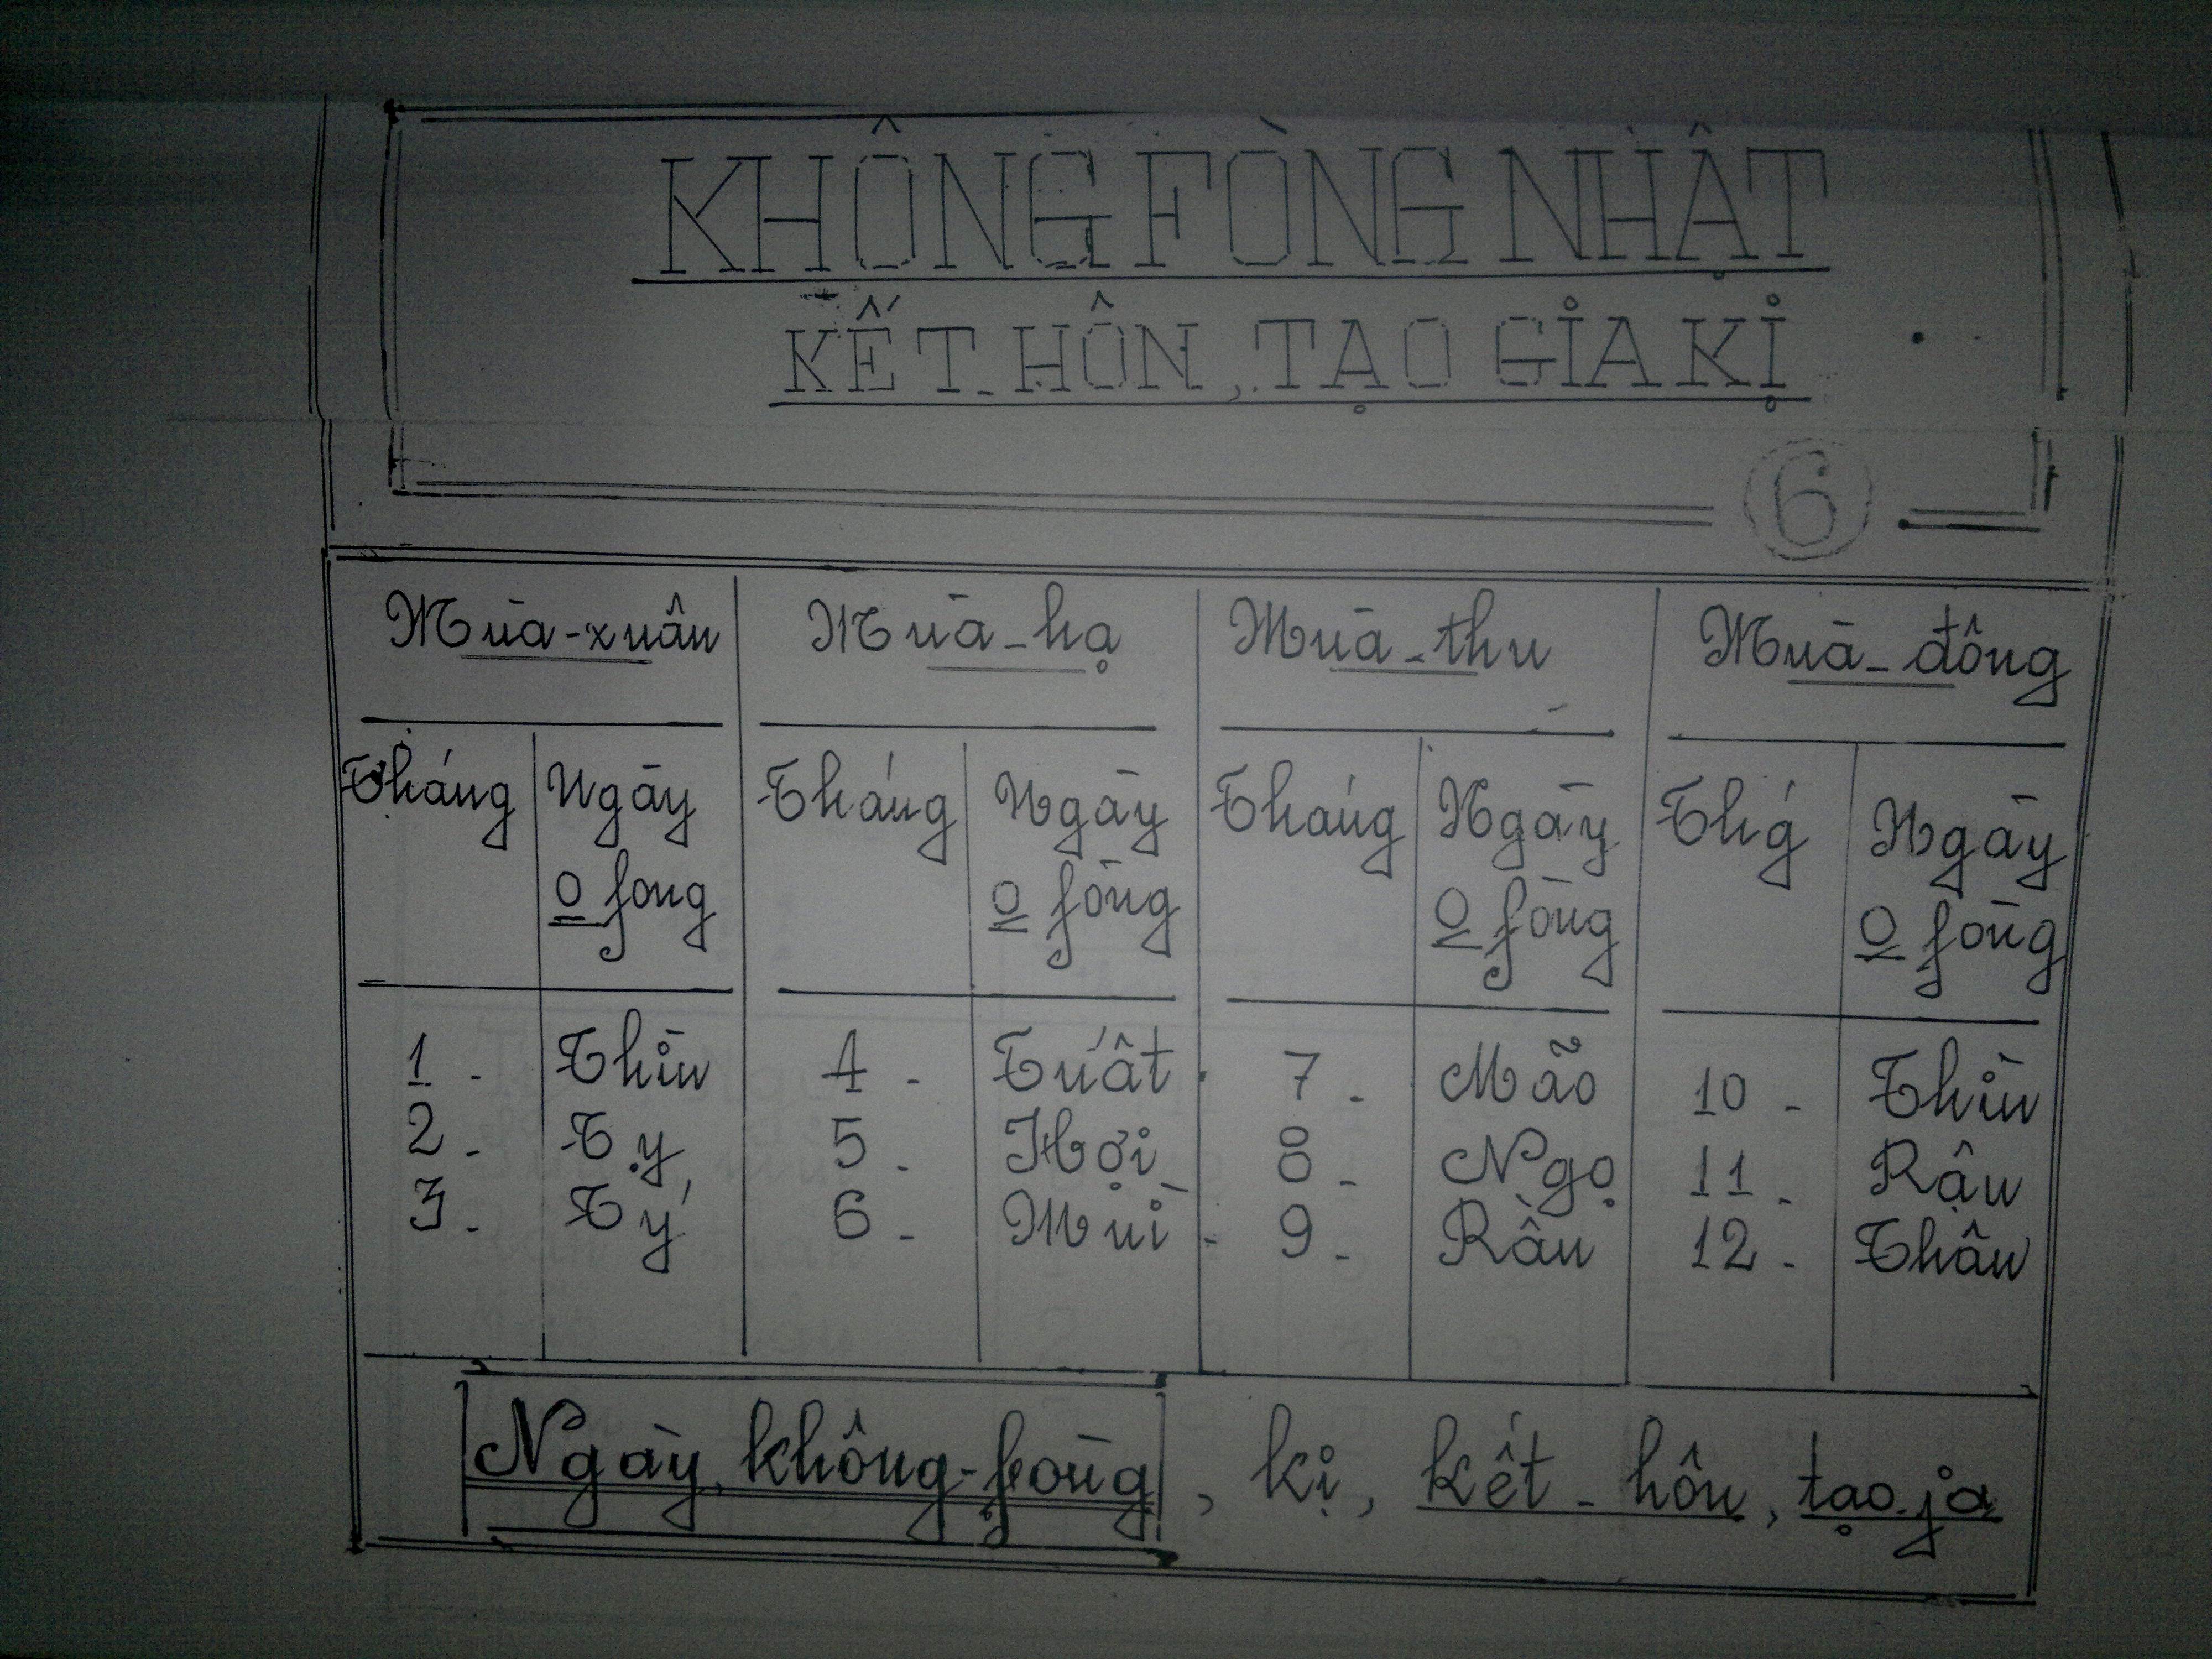 KHÔNG FÒNG NHẬT
KẾT-HÔN, TẠO GIA KỊ
6
Mùa-xuân Mùa-hạ Mùa-thu Mùa-đông
Tháng Ngày Tháng Ngày Tháng Ngày Thg´ Ngày
o fong o fòng o fòng o fòng
1 - Thìn 4 - Tuất 7 - Mão 10 - Thìn
2 - Tỵ 5 - Hợi 8 - Ngọ 11 - Rậu
3 - Tý 6 - Mùi 9 - Rần 12 - Thân
Ngày không-fòng, kị, kết-hôn, tạo ja